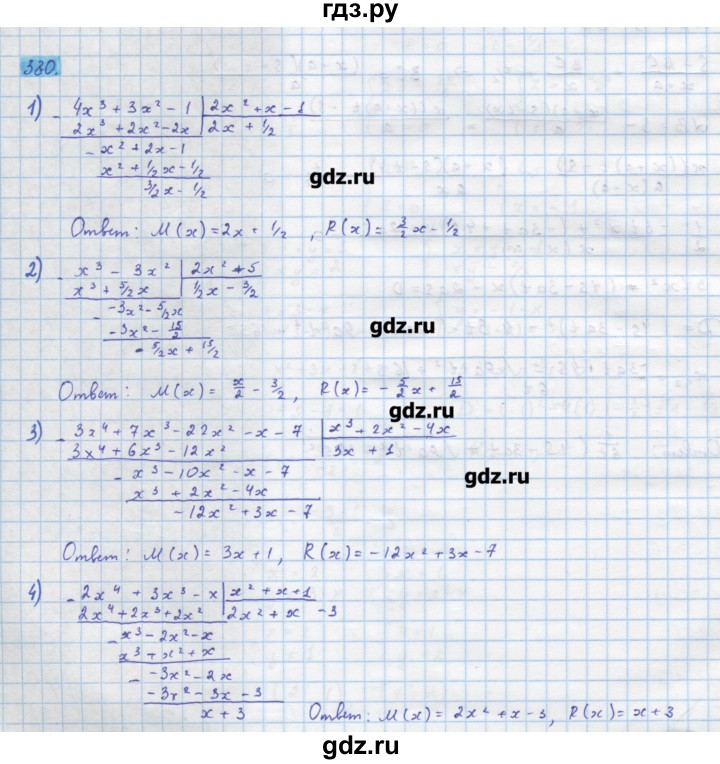 гдз.ру
380.
1) - 4x³ + 3x² - 1 | 2x² + x - 1
2x³ + 2x² - 2x | 2x + 1/2
- x² + 2x - 1
x² + 1/2x - 1/2
3/2x - 1/2
gdz.ru
Ответ: M(x) = 2x + 1/2 , R(x) = 3/2 x - 1/2
2) - x³ - 3x² | 2x² + 5
x³ + 5/2x | 1/2x - 3/2
- -3x² - 5/2x
-3x² - 15/2
- 5/2x + 15/2
gdz.ru
Ответ: M(x) = x/2 - 3/2, R(x) = - 5/2 x + 15/2
gdz.ru
3) - 3x⁴ + 7x³ - 22x² - x - 7 | x³ + 2x² - 4x
3x⁴ + 6x³ - 12x² | 3x + 1
- x³ - 10x² - x - 7
x³ + 2x² - 4x
-12x² + 3x - 7
gdz.ru
Ответ: M(x) = 3x + 1, R(x) = -12x² + 3x - 7
4) - 2x⁴ + 3x³ - x | x² + x + 1
2x⁴ + 2x³ + 2x² | 2x² + x - 3
- x³ - 2x² - x
x³ + x² + x
- -3x² - 2x
-3x² - 3x - 3
x + 3
gdz.ru
Ответ: M(x) = 2x² + x - 3, R(x) = x + 3
gdz.ru